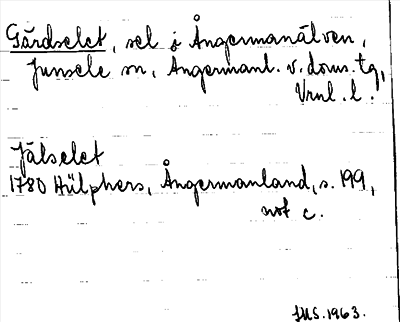 Gårdselet, sel i Ångermanälven,
Junsele sn, Ångermanl. v. doms. tg,
Vrnl. l.
Jälselet
1780 Hülphers, Ångermanland, s. 199,
not c.
IMS. 1963.